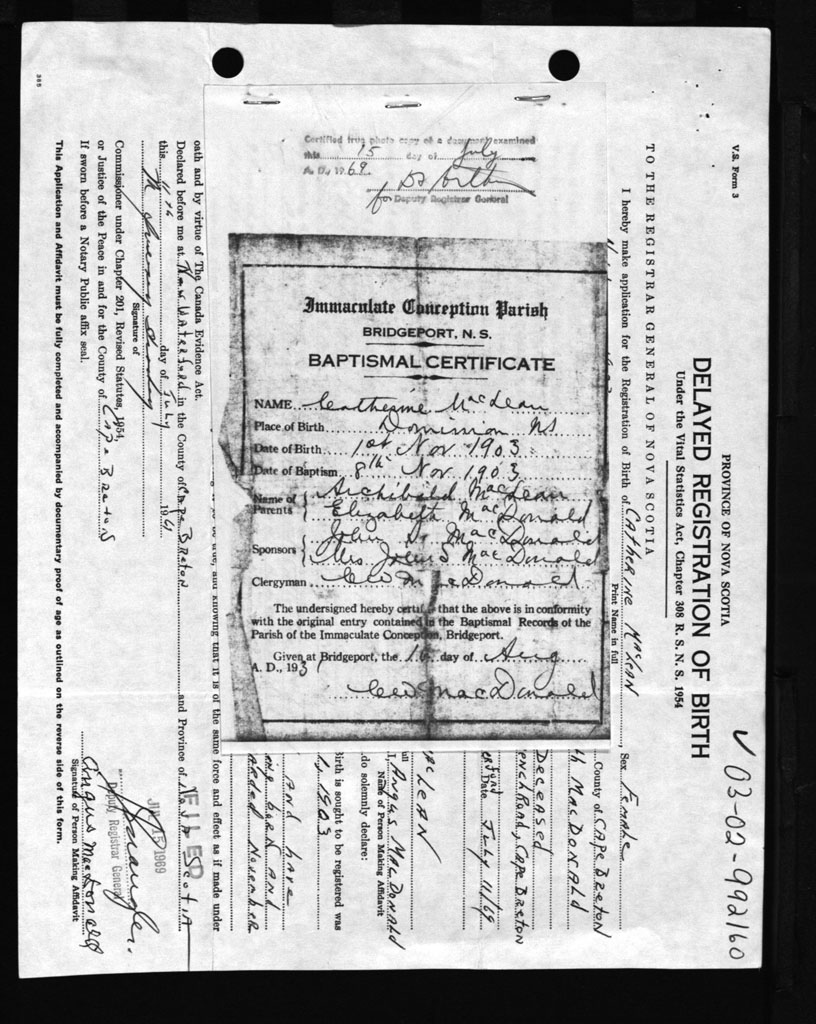 365
V.S. Form 3
✓ 03-02-992160
PROVINCE OF NOVA SCOTIA
DELAYED REGISTRATION OF BIRTH
Under the Vital Statistics Act, Chapter 308 R. S. N. S. 1954
TO THE REGISTRAR GENERAL OF NOVA SCOTIA
I hereby make application for the Registration of Birth of CATHERINE MACLEAN, Sex Female
Print Name in full
County of CAPE BRETON
MACDONALD
DECEASED
Road, CAPE BRETON
Date July 11/69
LEAN
I, ANGUS MACDONALD
Name of Person Making Affidavit
do solemnly declare:
Birth is sought to be registered was
1, 1903
AND HAVE
BORN AND
NOVEMBER
to be true, and knowing that it is of the same force and effect as if made under
oath and by virtue of The Canada Evidence Act.
Declared before me at New Waterford in the County of Cape Breton and Province of Nova Scotia
this 11th day of July 1969
Signature of
Commissioner under Chapter 201, Revised Statutes, 1954,
or Justice of the Peace in and for the County of Cape Breton
If sworn before a Notary Public affix seal.
FILED
JUL 15 1969
Deputy Registrar General
Angus MacDonald
Signature of Person Making Affidavit
This Application and Affidavit must be fully completed and accompanied by documentary proof of age as outlined on the reverse side of this form.
Certified true photo copy of a document examined
this 15 day of July
A. D. 1969.
for Deputy Registrar General
Immaculate Conception Parish
BRIDGEPORT, N. S.
BAPTISMAL CERTIFICATE
NAME Catherine MacLean
Place of Birth Dominion NS
Date of Birth 1st Nov 1903
Date of Baptism 8th Nov 1903
Name of Parents { Archibald MacLean
Elizabeth MacDonald
Sponsors { John MacDonald
Mrs MacDonald
Clergyman MacDonald
The undersigned hereby certify that the above is in conformity
with the original entry contained in the Baptismal Records of the
Parish of the Immaculate Conception, Bridgeport.
Given at Bridgeport, the 16 day of Aug
A. D., 193
MacDonald